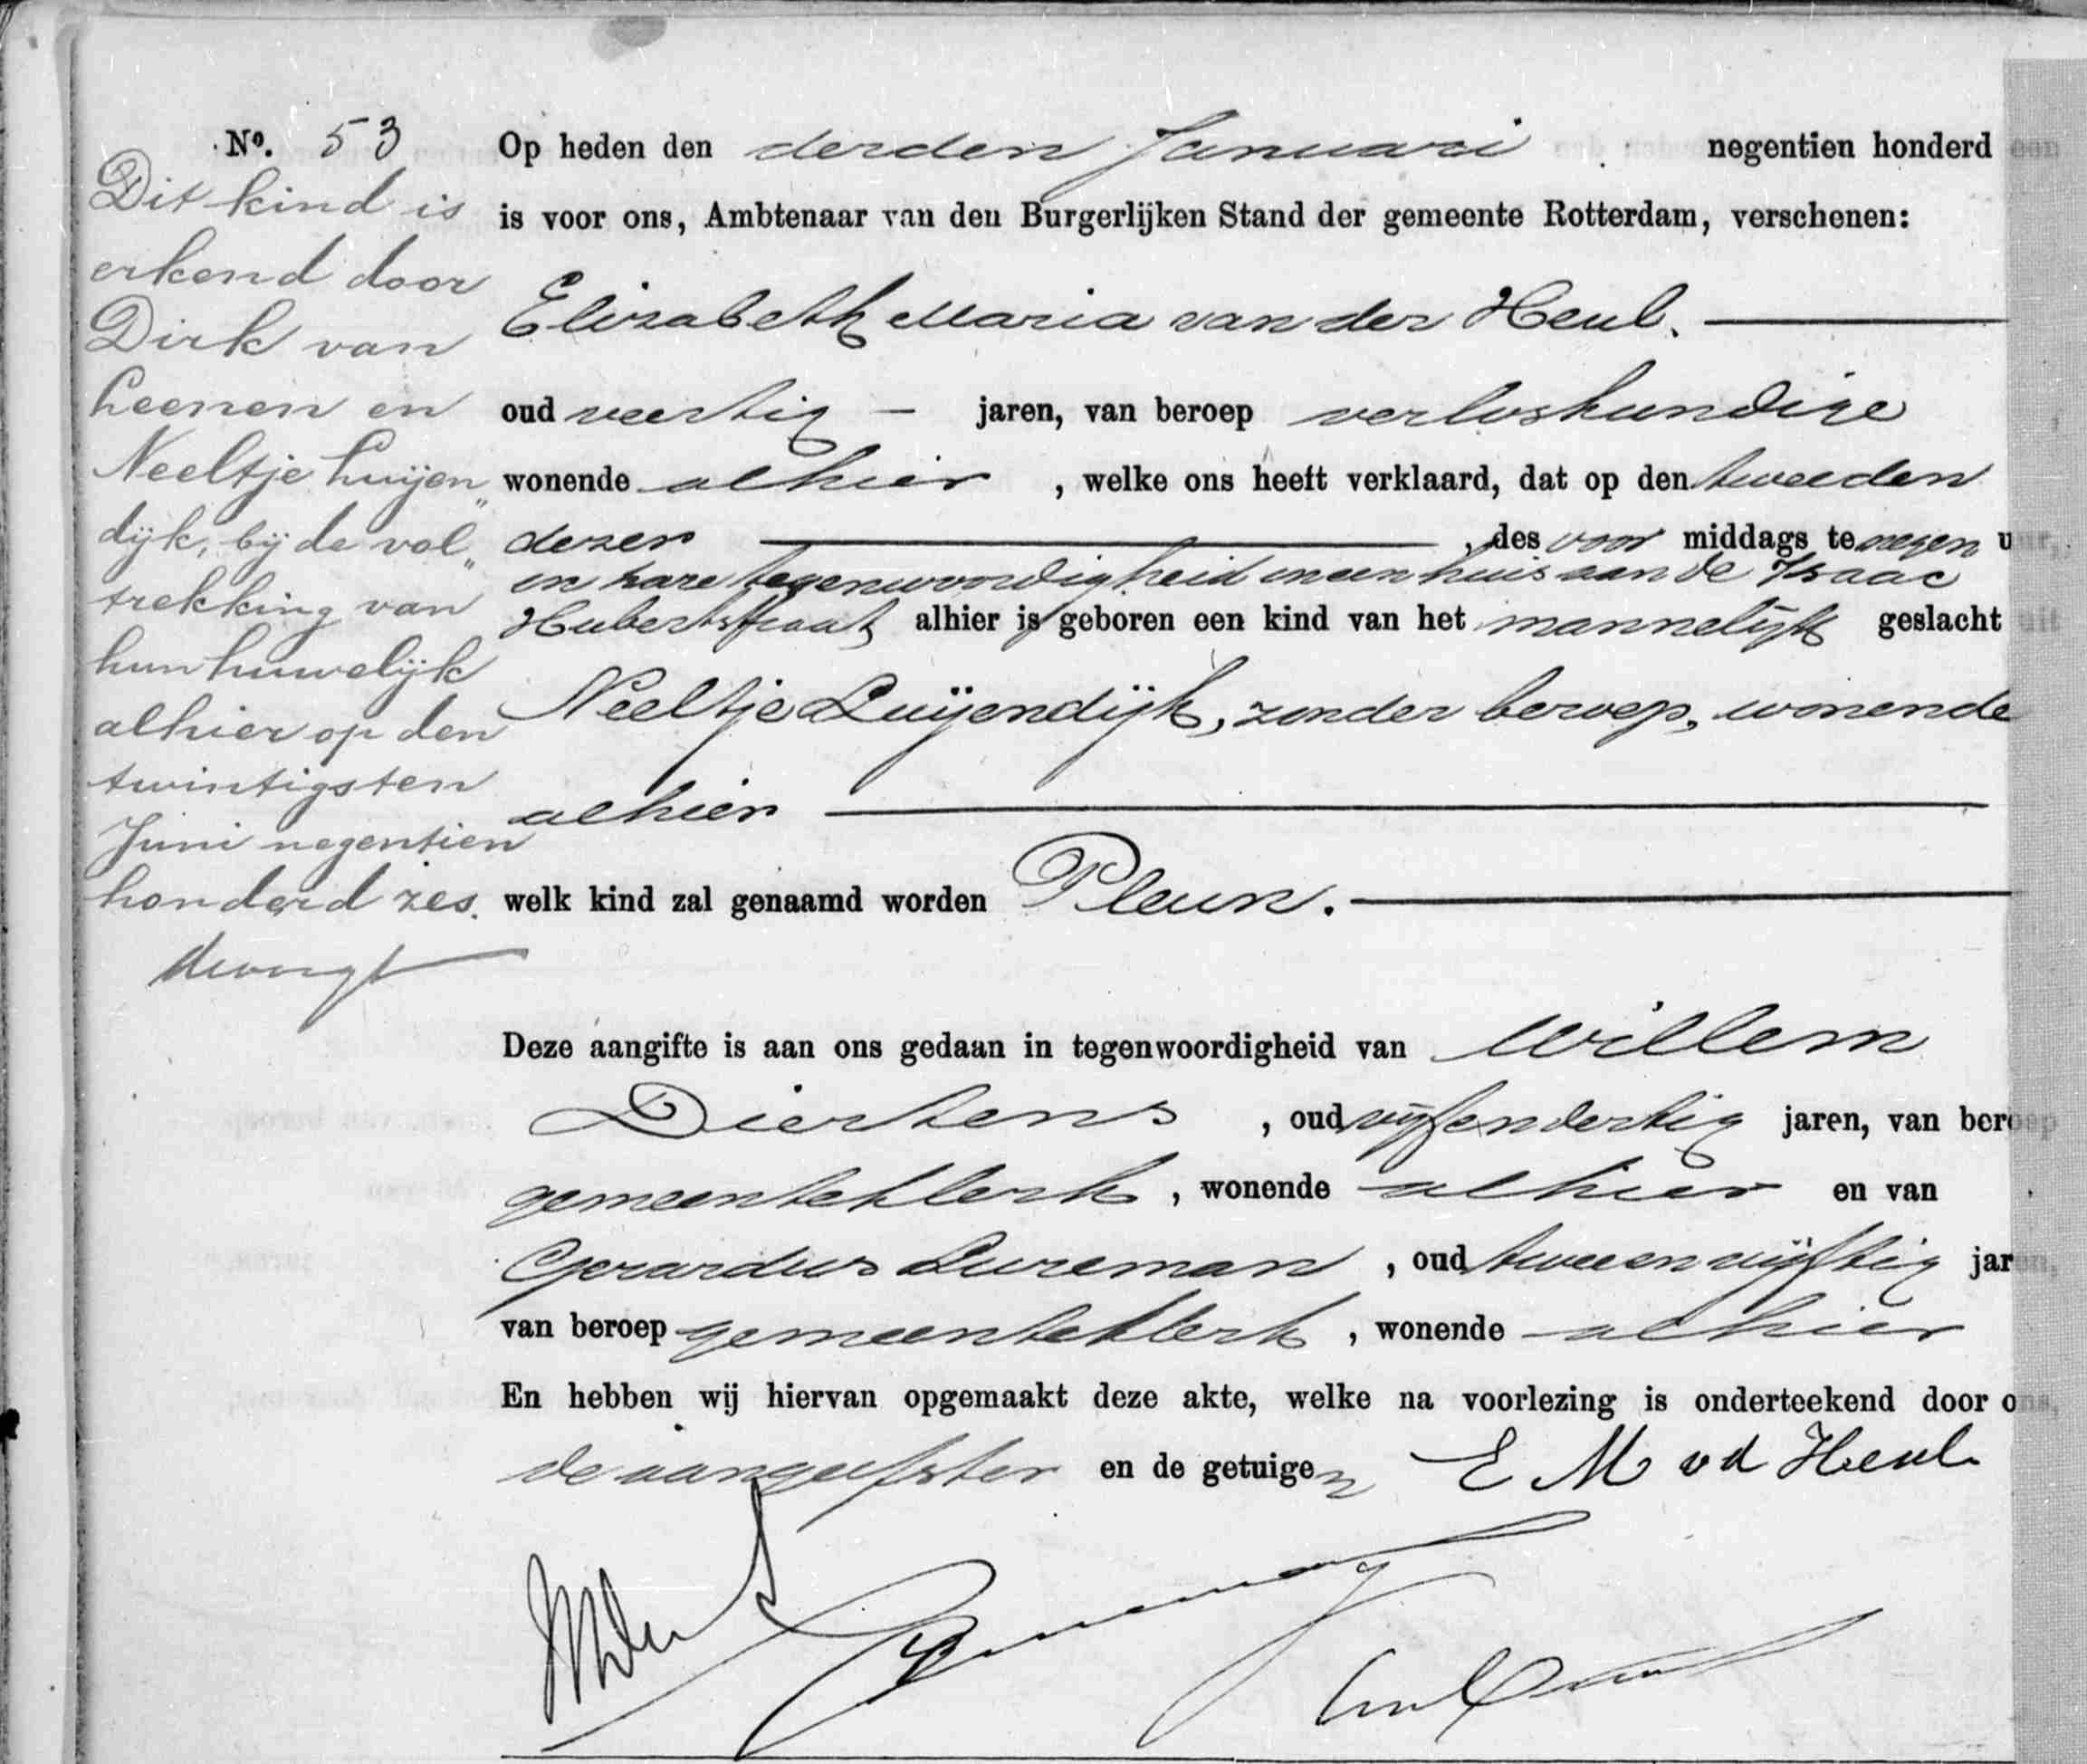 No. 53
Dit kind is
erkend door
Dirk van
Leenen en
Neeltje Luijen„
dijk, bij de vol„
trekking van
hun huwelijk
alhier op den
twintigsten
Juni negentien
honderd zes.
Op heden den derden Januari negentien honderd een
is voor ons, Ambtenaar van den Burgerlijken Stand der gemeente Rotterdam, verschenen:
Elizabeth Maria van der Heul.
oud veertig – jaren, van beroep verloskundige
wonende alhier , welke ons heeft verklaard, dat op den tweeden
dezer , des voor middags te negen uur,
in hare tegenwoordigheid in een huis aan de Isaac
Hubertstraat alhier is geboren een kind van het mannelijk geslacht uit
Neeltje Luijendijk, zonder beroep, wonende
alhier
welk kind zal genaamd worden Pleun.
Deze aangifte is aan ons gedaan in tegenwoordigheid van Willem
Diertens , oud vijfendertig jaren, van beroep
gemeenteklerk , wonende alhier en van
Gerardus Lureman , oud tweeenvijftig jaren,
van beroep gemeenteklerk , wonende alhier
En hebben wij hiervan opgemaakt deze akte, welke na voorlezing is onderteekend door ons,
de aangeefster en de getuigen E M vd Heul